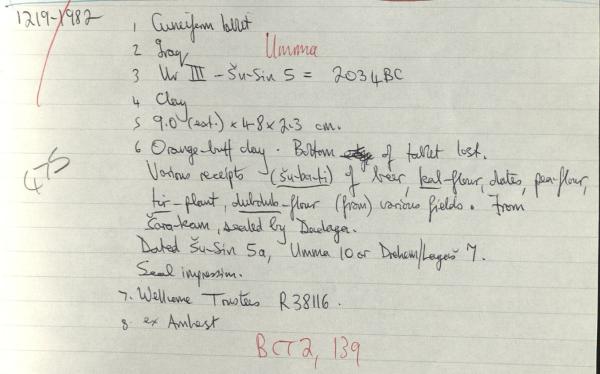 1219-1982
1 Cuneiform tablet
2 Iraq Umma
3 Ur III - Šu-Sin 5 = 2034 BC
4 Clay
5 9.0 (est.) x 4.8 x 2.3 cm.
6 Orange-buff clay. Bottom of tablet lost.
Various receipts - (šu-ba-ti) of beer, kal-flour, dates, pea-flour,
-plant, dubdub-flour (from) various fields. From
Šara-kam, sealed by Dadaga.
Dated Šu-Sin 5a, Umma 10 or Drehem/Lagaš 7.
Seal impression.
7. Wellcome Trustees R38116.
8. ex Amherst
BCT2, 139